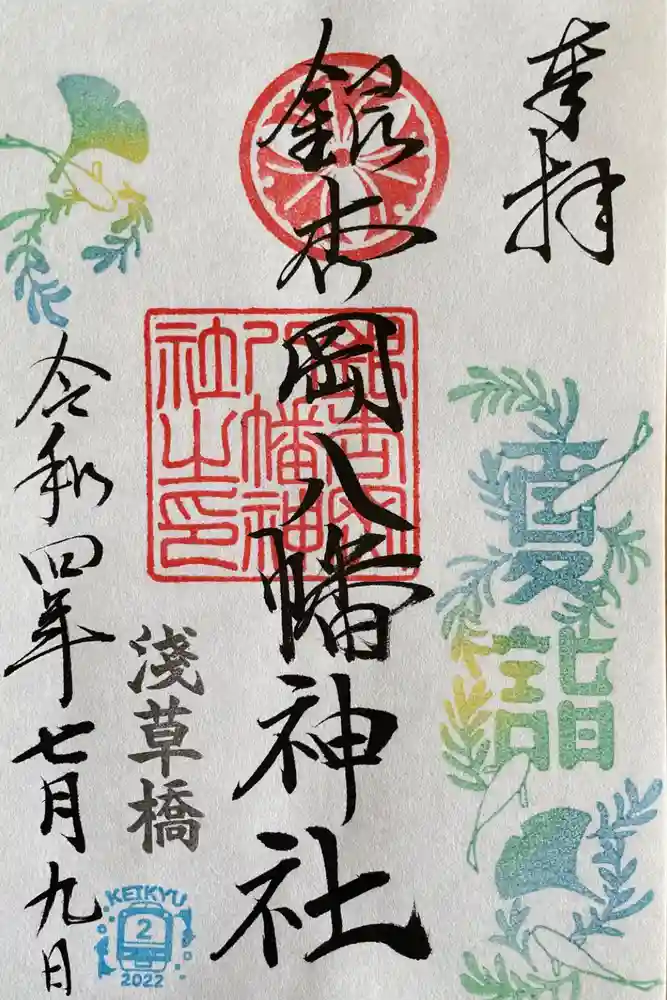 奉拝
夏詣
銀杏岡八幡神社
銀杏岡
八幡神
社之印
浅草橋
令和四年七月九日
KEIKYU
2
2022